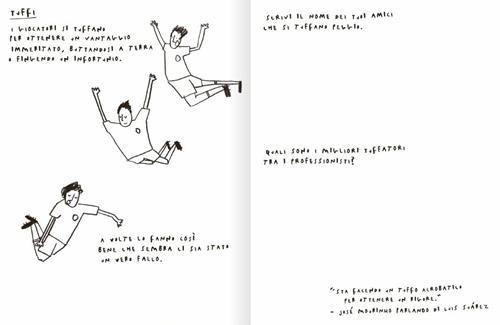 TUFFI
I GIOCATORI SI TUFFANO
PER OTTENERE UN VANTAGGIO
IMMERITATO, BUTTANDOSI A TERRA
O FINGENDO UN INFORTUNIO.
A VOLTE LO FANNO COSÌ
BENE CHE SEMBRA CI SIA STATO
UN VERO FALLO.
SCRIVI IL NOME DEI TUOI AMICI
CHE SI TUFFANO PEGGIO.
QUALI SONO I MIGLIORI TUFFATORI
TRA I PROFESSIONISTI?
"STA FACENDO UN TUFFO ACROBATICO
PER OTTENERE UN RIGORE."
- JOSÉ MOURINHO PARLANDO DI LUIS SUÁREZ